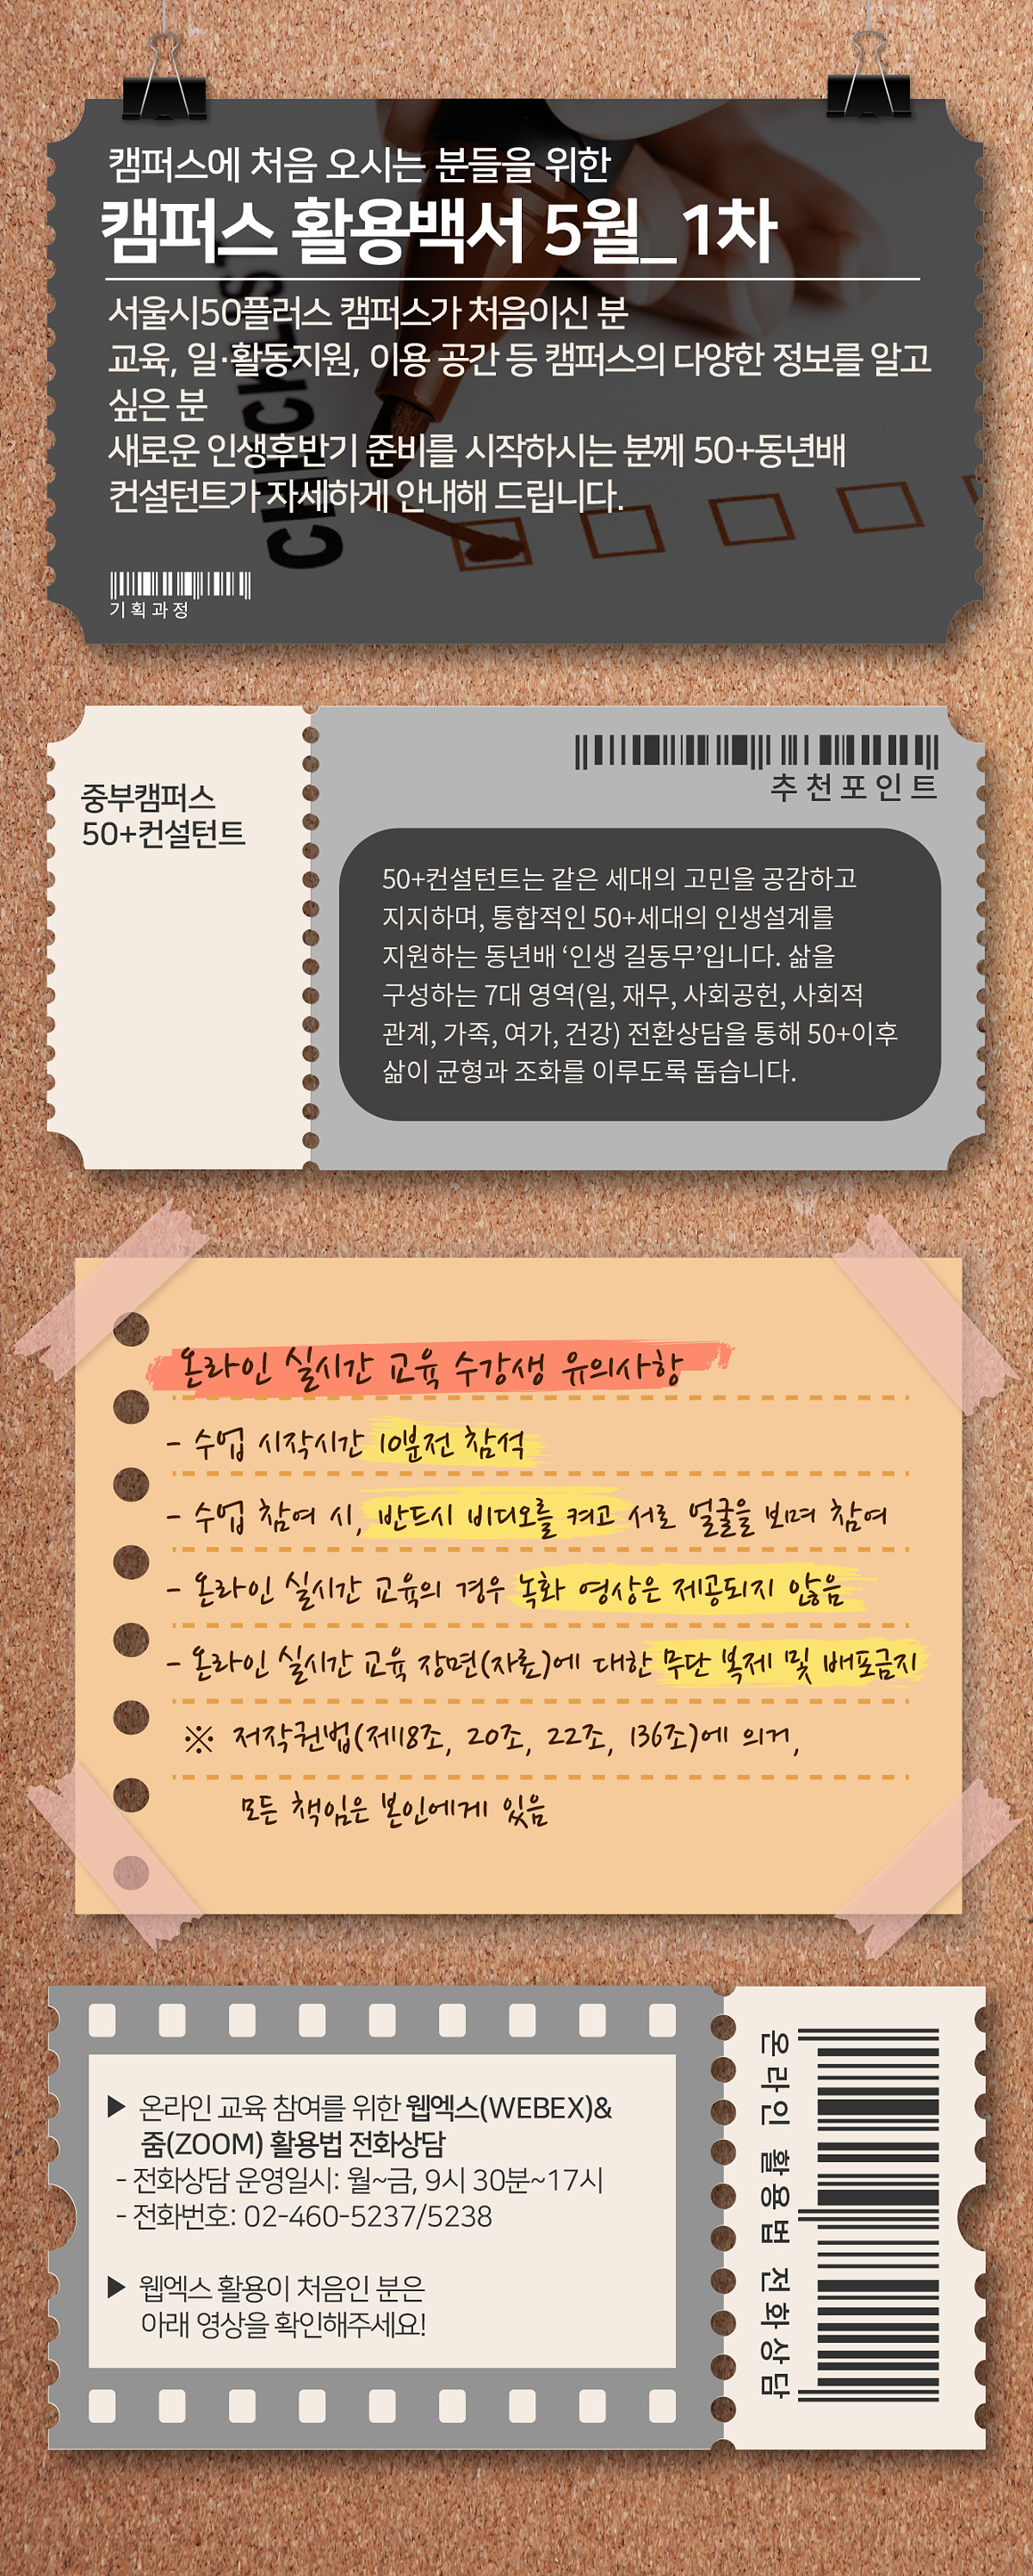 캠퍼스에 처음 오시는 분들을 위한
캠퍼스 활용백서 5월_1차
서울시50플러스 캠퍼스가 처음이신 분
교육, 일·활동지원, 이용 공간 등 캠퍼스의 다양한 정보를 알고
싶은 분
새로운 인생후반기 준비를 시작하시는 분께 50+동년배
컨설턴트가 자세하게 안내해 드립니다.
CHECK-LIST
기획과정
중부캠퍼스
50+컨설턴트
추천포인트
50+컨설턴트는 같은 세대의 고민을 공감하고
지지하며, 통합적인 50+세대의 인생설계를
지원하는 동년배 ‘인생 길동무’입니다. 삶을
구성하는 7대 영역(일, 재무, 사회공헌, 사회적
관계, 가족, 여가, 건강) 전환상담을 통해 50+이후
삶이 균형과 조화를 이루도록 돕습니다.
온라인 실시간 교육 수강생 유의사항
- 수업 시작시간 10분전 참석
- 수업 참여 시, 반드시 비디오를 켜고 서로 얼굴을 보며 참여
- 온라인 실시간 교육의 경우 녹화 영상은 제공되지 않음
- 온라인 실시간 교육 장면(자료)에 대한 무단 복제 및 배포금지
※ 저작권법(제18조, 20조, 22조, 136조)에 의거,
모든 책임은 본인에게 있음
▶ 온라인 교육 참여를 위한 웹엑스(WEBEX)&
줌(ZOOM) 활용법 전화상담
- 전화상담 운영일시: 월~금, 9시 30분~17시
- 전화번호: 02-460-5237/5238
▶ 웹엑스 활용이 처음인 분은
아래 영상을 확인해주세요!
온라인 활용법 전화상담